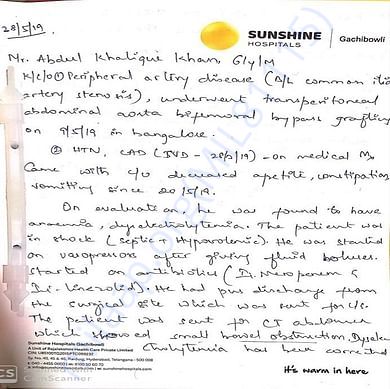 28/5/19.
SUNSHINE
HOSPITALS
Gachibowli
Mr. Abdul Khalique Khan, 61y/M
K/c/o ① Peripheral artery disease (B/L common iliac
artery stenosis), underwent transperitoneal
abdominal aorta bifemoral bypass grafting
on 9/5/19 in bangalore.
② HTN, CAD (TVD - 28/2/19) - on medical Mx
Came with c/o decreased apetite, constipation,
vomiting since 20/5/19.
On evaluation, he was found to have
anaemia, dyselectrolytemia. The patient was
in shock (septic + Hypovolemic). He was started
on vasopressors after giving fluid boluses.
Started on antibiotics (Inj. Meropenem &
Inj. Linezolid). He had pus discharge from
the surgical site which was sent for c/s.
The patient was sent for CT abdomen
which showed small bowel obstruction. Dyselec-
trolytemia has been corrected
Sunshine Hospitals Gachibowli
A Unit of Rajalakshmi Health Care Private Limited
It's warm in here
CS
CamScanner